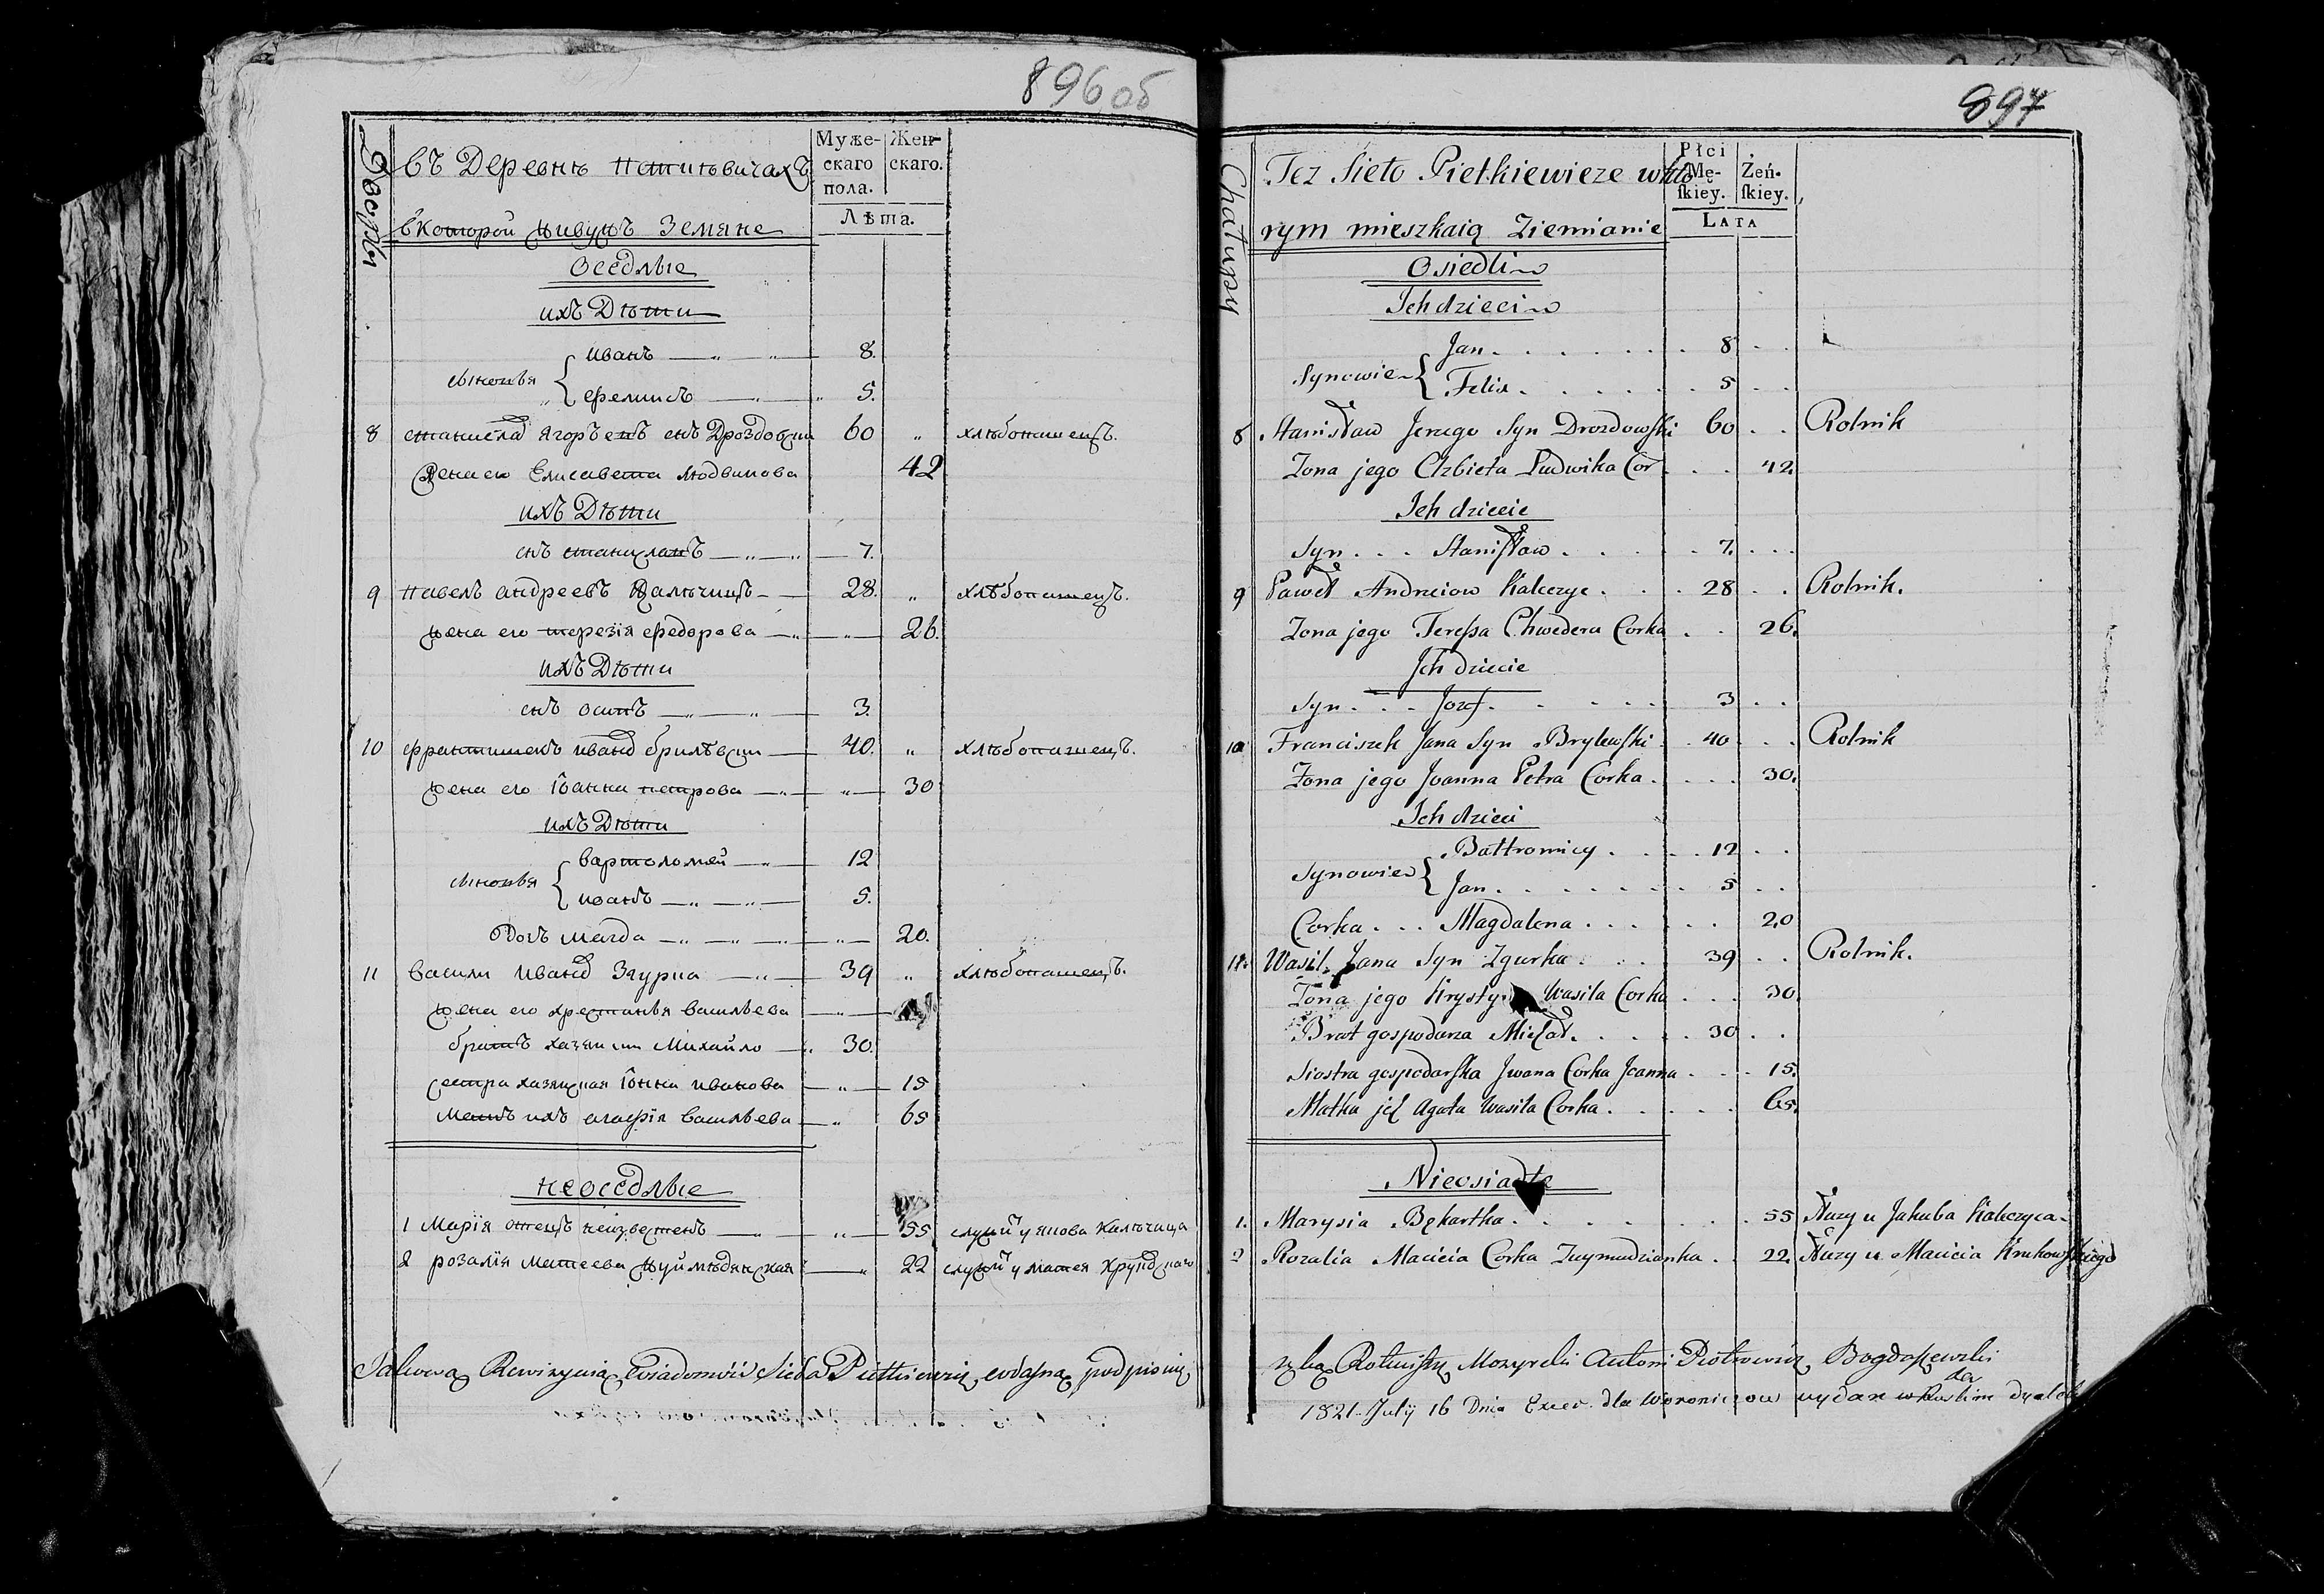 896 об
Дворы
Въ Деревнѣ Петкѣвичахъ
Мужескаго пола.
Женскаго.
вкоторой живутъ Земяне
Лѣта.
Оседлые
ихъ Дѣти
сыновья { Иванъ 8.
Феликсъ 5.
8 Станислав Ягоръевъ снъ Дроздовски 60 „ хлѣбопашецъ.
Жена его Елисавета людвикова 42
ихъ Дѣти
снъ станиславъ 7.
9 Павелъ андреевъ Кальчицъ 28. „ хлѣбопашецъ.
жена его терезія федорова „ 26.
ихъ Дѣти
снъ осипъ 3.
10 францишекъ иванов брилѣвски 40. „ хлѣбопашецъ.
жена его Іоанна петрова „ 30
ихъ Дѣти
сыновья { вартоломей 12
иванъ 5.
Дочь магда „ 20.
11 Васили Иванов Згурка 39 „ хлѣбопашецъ.
жена его христинья васильева
братъ хазяиски Михайло 30.
сестра хазяиская Іоанна иванова „ 15
мать ихъ агафія васильева „ 65
неоседлые
1 Марія отецъ неизвестенъ „ 55 служит у якова Кальчица
2 розалія матеева жуймѣдянская „ 22 служит у матея
Rewizyina Wiadomość Sioła podpisuię
897
Chatupy
Też Sieło Pietkiewicze w któ
Płci Męskiey.
Żeńskiey.
rym mieszkaią Ziemianie
LATA
Osiedli
Ich dzieci
Synowie { Jan 8
Felix 5
8 Stanisław Jerzego Syn Drozdowski 60 Rolnik
Zona jego Elzbieta Ludwika Cor 42.
Ich dziecie
Syn Stanisław 7.
9 Paweł Andrzeiow Kalczyc 28 Rolnik.
Zona jego Teressa Chwedera Corka 26.
Ich dziecie
Syn Jozef 3
10 Franciszek Jana Syn Brylewski 40 Rolnik
Zona jego Joanna Petra Corka 30.
Ich dzieci
Synowie { Bałtromiey 12
Jan 5
Corka Magdalena 20
11. Wasil Jana Syn Zgurka 39 Rolnik.
Zona jego Krysty Wasila Corka 30.
Brat gospodarza Michał 30
Siostra gospodarska Jwana Corka Joanna 15.
Matka ich Agata Wasila Corka 65.
Nieosiadłe
1. Marysia Bękartka 55 Służy u Jakuba Kalczyca
2 Rozalia Macieia Corka Zuymudzianka 22. Służy u Macieia Krukowskiego
Rotmistrz Mozyrski Antoni Piotrowicz Bogdaszewski
1821 July 16 Dnia Exev. dla Woroniczow wydan w Ruskim